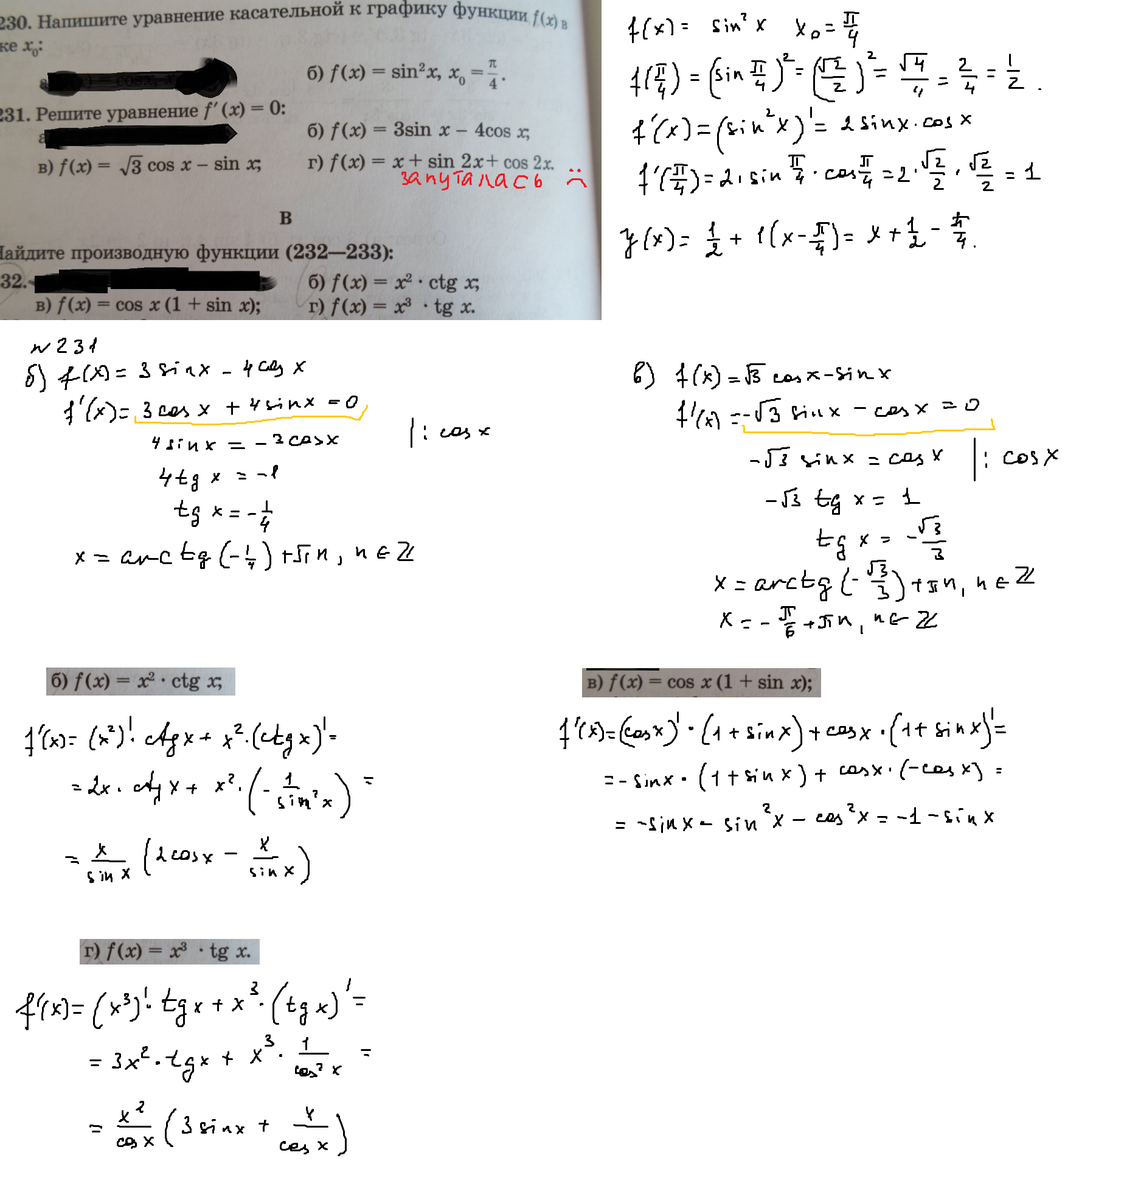 230. Напишите уравнение касательной к графику функции f(x) в
ке x₀:
б) f(x) = sin²x, x₀ = π/4.
231. Решите уравнение f′(x) = 0:
б) f(x) = 3sin x − 4cos x;
в) f(x) = √3 cos x − sin x;
г) f(x) = x + sin 2x + cos 2x.
запуталась :(
В
Найдите производную функции (232—233):
32.
б) f(x) = x² · ctg x;
в) f(x) = cos x (1 + sin x);
г) f(x) = x³ · tg x.
f(x) = sin²x x₀ = π/4
f(π/4) = (sin π/4)² = (√2/2)² = √4/4 = 2/4 = 1/2.
f′(x) = (sin²x)′ = 2 sin x · cos x
f′(π/4) = 2 · sin π/4 · cos π/4 = 2 · √2/2 · √2/2 = 1
y(x) = 1/2 + 1(x − π/4) = x + 1/2 − π/4.
№231
б) f(x) = 3 sin x − 4 cos x
f′(x) = 3 cos x + 4 sin x = 0
4 sin x = −3 cos x |: cos x
4 tg x = −1
tg x = −1/4
x = arctg(−1/4) + πn, n ∈ ℤ
в) f(x) = √3 cos x − sin x
f′(x) = −√3 sin x − cos x = 0
−√3 sin x = cos x |: cos x
−√3 tg x = 1
tg x = −√3/3
x = arctg(−√3/3) + πn, n ∈ ℤ
x = −π/6 + πn, n ∈ ℤ
б) f(x) = x² · ctg x;
f′(x) = (x²)′ · ctg x + x² · (ctg x)′ =
= 2x · ctg x + x² · (−1/sin²x) =
= x/sin x (2 cos x − x/sin x)
в) f(x) = cos x (1 + sin x);
f′(x) = (cos x)′ · (1 + sin x) + cos x · (1 + sin x)′ =
= −sin x · (1 + sin x) + cos x · (−cos x) =
= −sin x − sin²x − cos²x = −1 − sin x
г) f(x) = x³ · tg x.
f′(x) = (x³)′ · tg x + x³ · (tg x)′ =
= 3x² · tg x + x³ · 1/cos²x =
= x²/cos x (3 sin x + x/cos x)